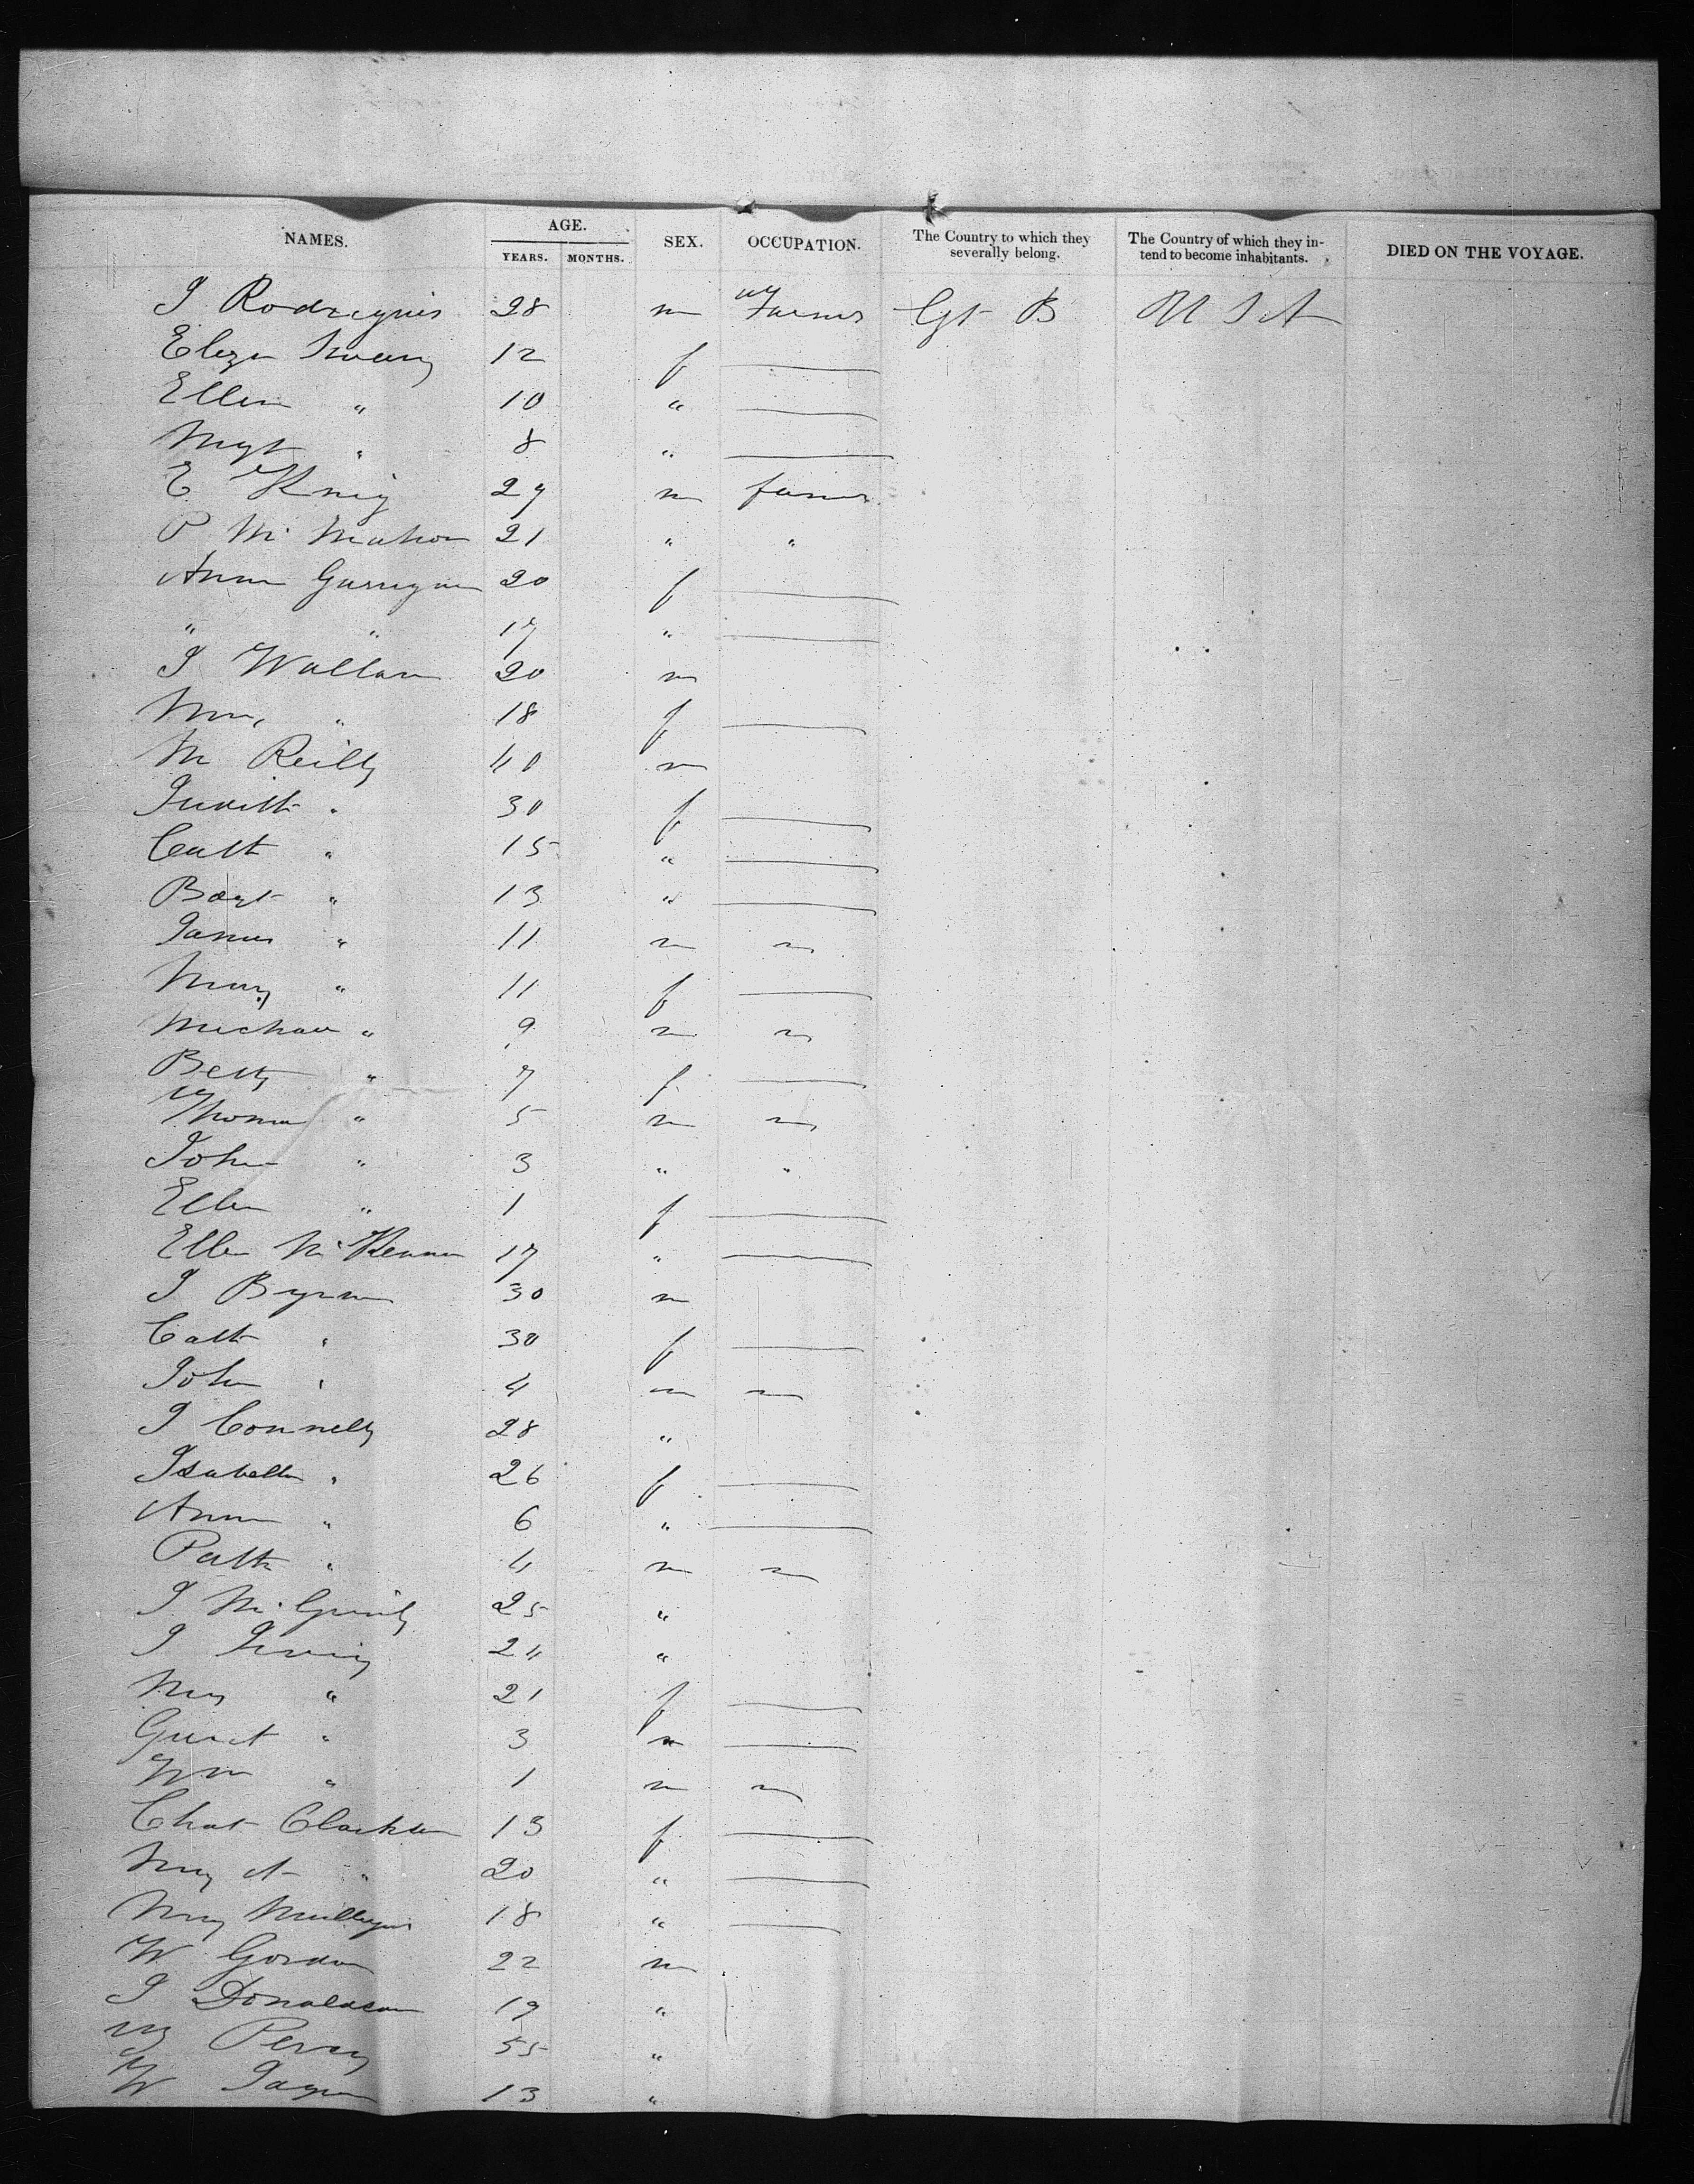 NAMES. AGE. YEARS. MONTHS. SEX. OCCUPATION. The Country to which they severally belong. The Country of which they intend to become inhabitants. DIED ON THE VOYAGE.
J Rodrigues 28 m Farmer Gt B U S A
Eliza 12 f
Ellen " 10 "
Mgt " 8 "
E King 29 m farmer
P McMahon 21 " "
Anne Garrigan 20 f
" " 17 "
J Wallace 20 m
Mrs " 18 f
M Reilly 40 m
Judith " 30 f
Cath " 15 "
Bdgt " 13 "
James " 11 m
Mary " 11 f
Michael " 9 m
Betty " 7 f
Thomas " 5 m
John " 3 " "
Ellen " 1 f
Ellen McKenna 17 "
J Byrne 30 m
Cath " 30 f
John " 4 m
J Connelly 28 "
Isabella " 26 f
Ann " 6 "
Patk " 4 m
J 25 "
J Irving 24 "
" 21 f
" 3 m
Wm " 1 m
Chat 13 f
Mary A " 20 "
Mary Mulligan 18 "
W Gordon 22 m
J Donaldson 19 "
Percy 55 "
W 13 "